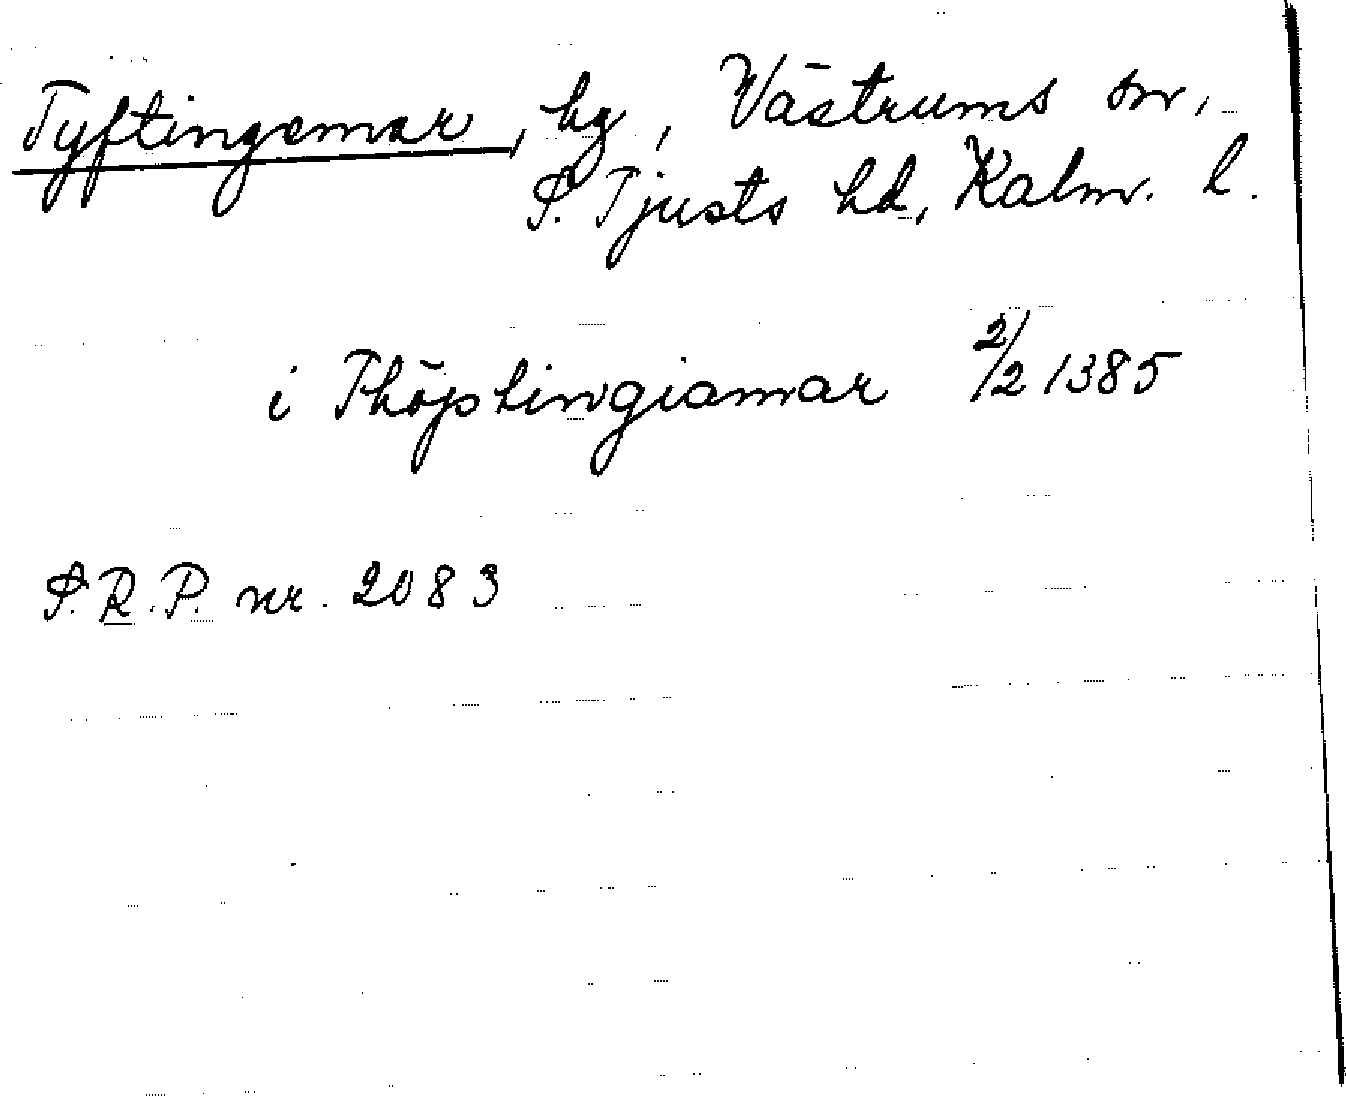 Tyftingemar, hg, Västrums sn,
S. Tjusts hd, Kalm. l.
i Thöptingiamar 2/2 1385
S.R.P. nr. 2083